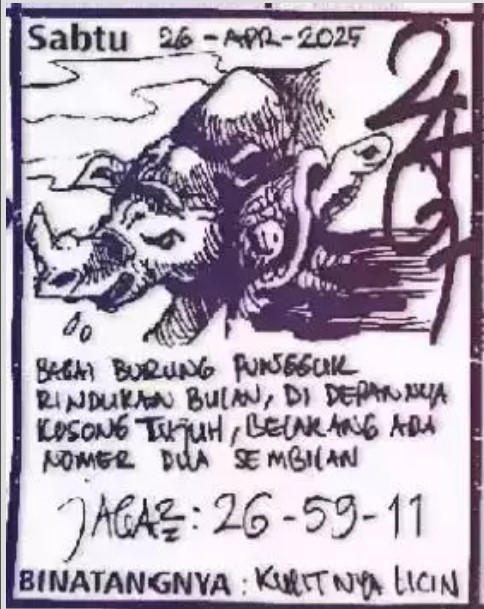 Sabtu 26-APR-2025
BAGAI BURUNG PUNGGUK
RINDUKAN BULAN, DI DEPANNYA
KOSONG TUJUH, BELAKANG ADA
NOMER DUA SEMBILAN
JAGA2: 26-59-11
BINATANGNYA : KULITNYA LICIN